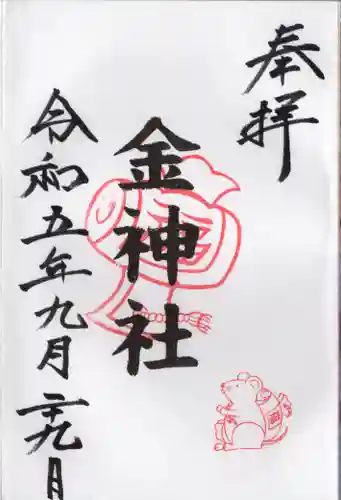 奉拝
金神社
令和五年九月二十九月